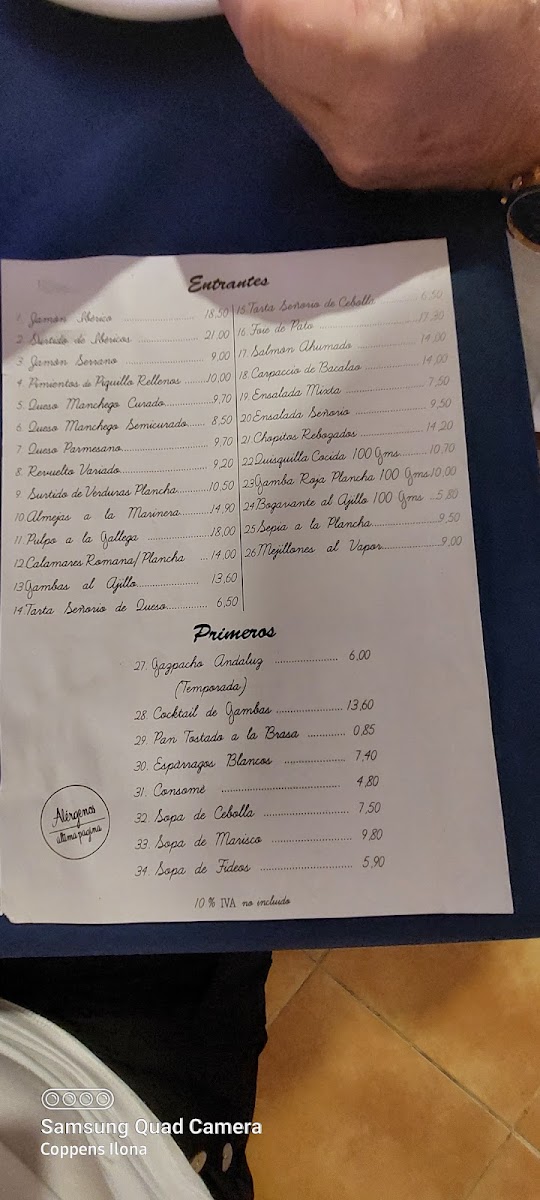 Entrantes
1. Jamón Ibérico 18,50
2. Surtido de Ibéricos 21,00
3. Jamón Serrano 9,00
4. Pimientos de Piquillo Rellenos 10,00
5. Queso Manchego Curado 9,70
6. Queso Manchego Semicurado 8,50
7. Queso Parmesano 9,70
8. Revuelto Variado 9,20
9. Surtido de Verduras Plancha 10,50
10. Almejas a la Marinera 14,90
11. Pulpo a la Gallega 18,00
12. Calamares Romana/Plancha 14,00
13. Gambas al Ajillo 13,60
14. Tarta Señorio de Queso 6,50
15. Tarta Señorio de Cebolla 6,50
16. Foie de Pato 17,30
17. Salmón Ahumado 14,00
18. Carpaccio de Bacalao 14,00
19. Ensalada Mixta 7,50
20. Ensalada Señorio 9,50
21. Chopitos Rebozados 14,20
22. Quisquilla Cocida 100 Gms 10,70
23. Gamba Roja Plancha 100 Gms 10,00
24. Bogavante al Ajillo 100 Gms 5,80
25. Sepia a la Plancha 9,50
26. Mejillones al Vapor 9,00
Primeros
27. Gazpacho Andaluz 6,00
(Temporada)
28. Cocktail de Gambas 13,60
29. Pan Tostado a la Brasa 0,85
30. Espárragos Blancos 7,40
31. Consomé 4,80
32. Sopa de Cebolla 7,50
33. Sopa de Marisco 9,80
34. Sopa de Fideos 5,90
Alérgenos
última página
10 % IVA no incluido
Samsung Quad Camera
Coppens Ilona